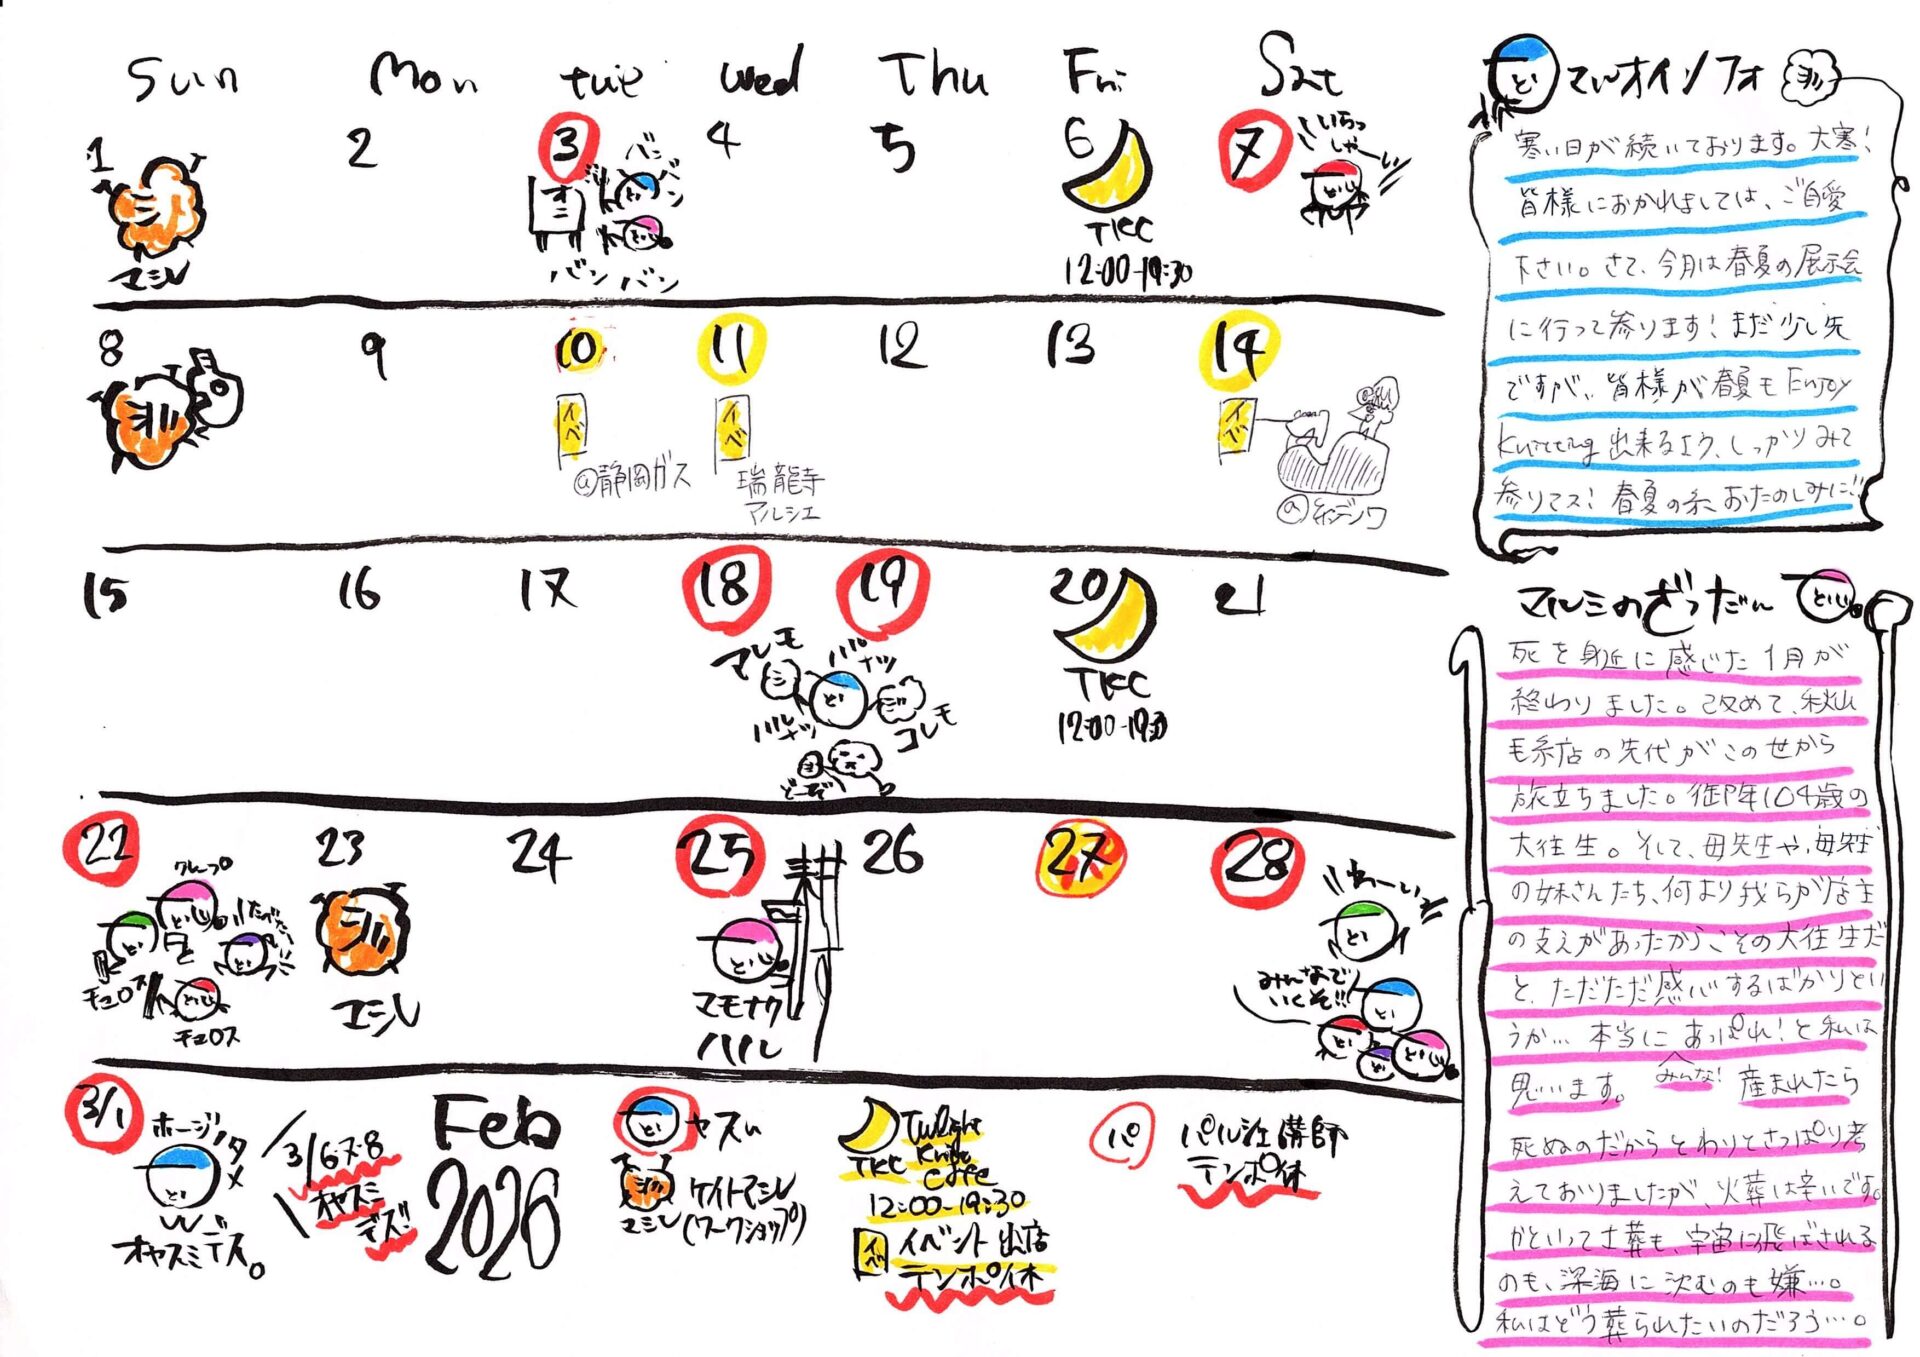 Sun Mon tue wed Thu Fri Sat
1 2 3 4 5 6 7
マシレ
バン
バン
バン バン
TKC
12:00-19:30
いらっ
しゃーい
8 9 10 11 12 13 14
イベ
@静岡ガス
イベ
瑞龍寺
アルシェ
イベ
@糸デンワ
15 16 17 18 19 20 21
マレモ
ハルナツ
コレモ
どーぞ
TKC
12:00-19:30
22 23 24 25 26 27 28
クレープ
チュロス
チュロス
マシレ
耕
マモナク
ハル
わーい
みんなで
いくぞ!!
3/1
ホージノタメ
オヤスミデス。
3/6・7・8
オヤスミ
デス!
Feb
2026
ヤスム
マシレ
ケイトマシレ
(ワークショップ)
TKC
Twilight
Knit
Cafe
12:00-19:30
イベ
イベント出店
テンポ休
パ
パルシェ講師
テンポ休
マルオインフォ
寒い日が続いております。大寒!
皆様におかれましては、ご自愛
下さい。さて、今月は春夏の展示会
に行って参ります!まだ少し先
ですが、皆様が春夏もEnjoy
Knitting出来るよう、しっかりみて
参りマス!春夏の糸、おたのしみに!!
マルミのざつだん
死を身近に感じた1月が
終わりました。改めて、秋山
毛糸店の先代がこの世から
旅立ちました。御年104歳の
大往生。そして、母先生や、母先生
の妹さんたち、何より我らが店主
の支えがあったからこその大往生だ
と、ただただ感心するばかりとい
うか…本当にあっぱれ!と私は
思います。みんな!産まれたら
死ぬのだからとわりとさっぱり考
えておりましたが、火葬は辛いです。
かといって土葬も、宇宙に飛ばされる
のも、深海に沈むのも嫌…。
私はどう葬られたいのだろう…。